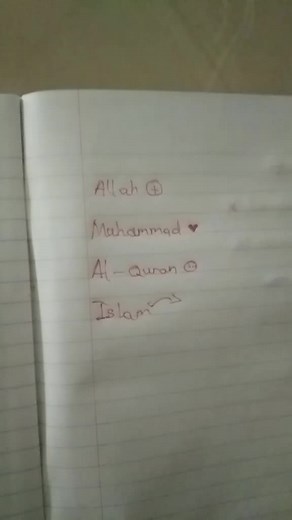 Allah ⊕
Muhammad ♥
Al-Quran ☺
Islam